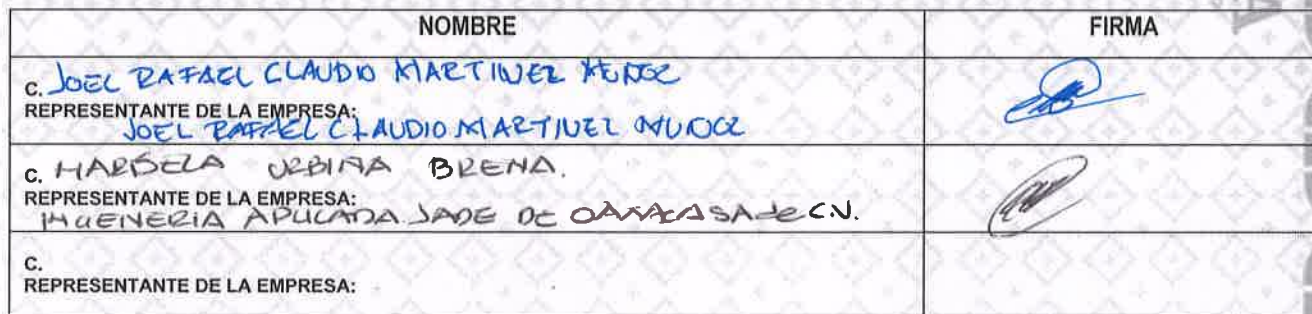 NOMBRE FIRMA
C. JOEL RAFAEL CLAUDIO MARTINEZ MUÑOZ
REPRESENTANTE DE LA EMPRESA:
JOEL RAFAEL CLAUDIO MARTINEZ MUÑOZ
C. MARISELA URBINA BRENA.
REPRESENTANTE DE LA EMPRESA:
INGENERIA APLICADA JADE DE OAXACA SA de C.V.
C.
REPRESENTANTE DE LA EMPRESA: